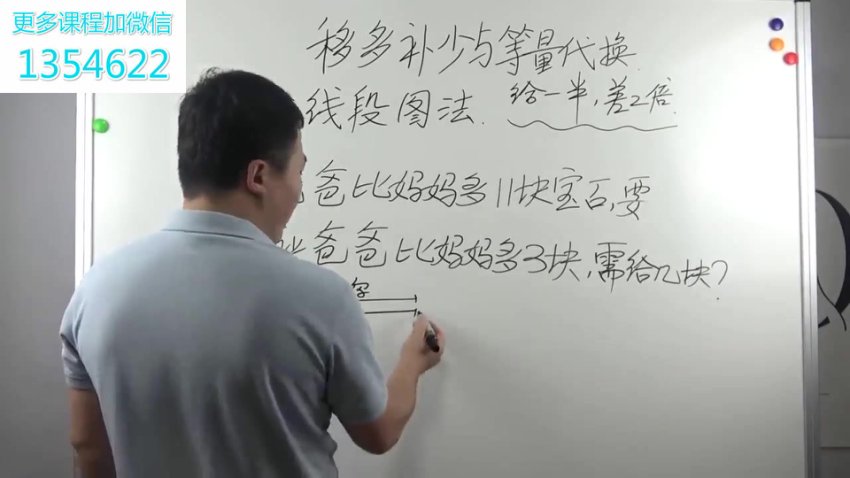 更多课程加微信
1354622
移多补少与等量代换
线段图法. 给一半,差2倍.
爸比妈妈多11块宝石,要
爸爸比妈妈多3块,需给几块?